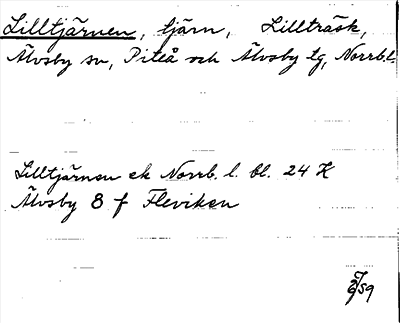 Lilltjärnen, tjärn, Lillträsk,
Älvsby sn, Piteå och Älvsby tg, Norrb.l.
Lilltjärnen ek Norrb. l. bl. 24 K
Älvsby 8 f Fleviken
/59